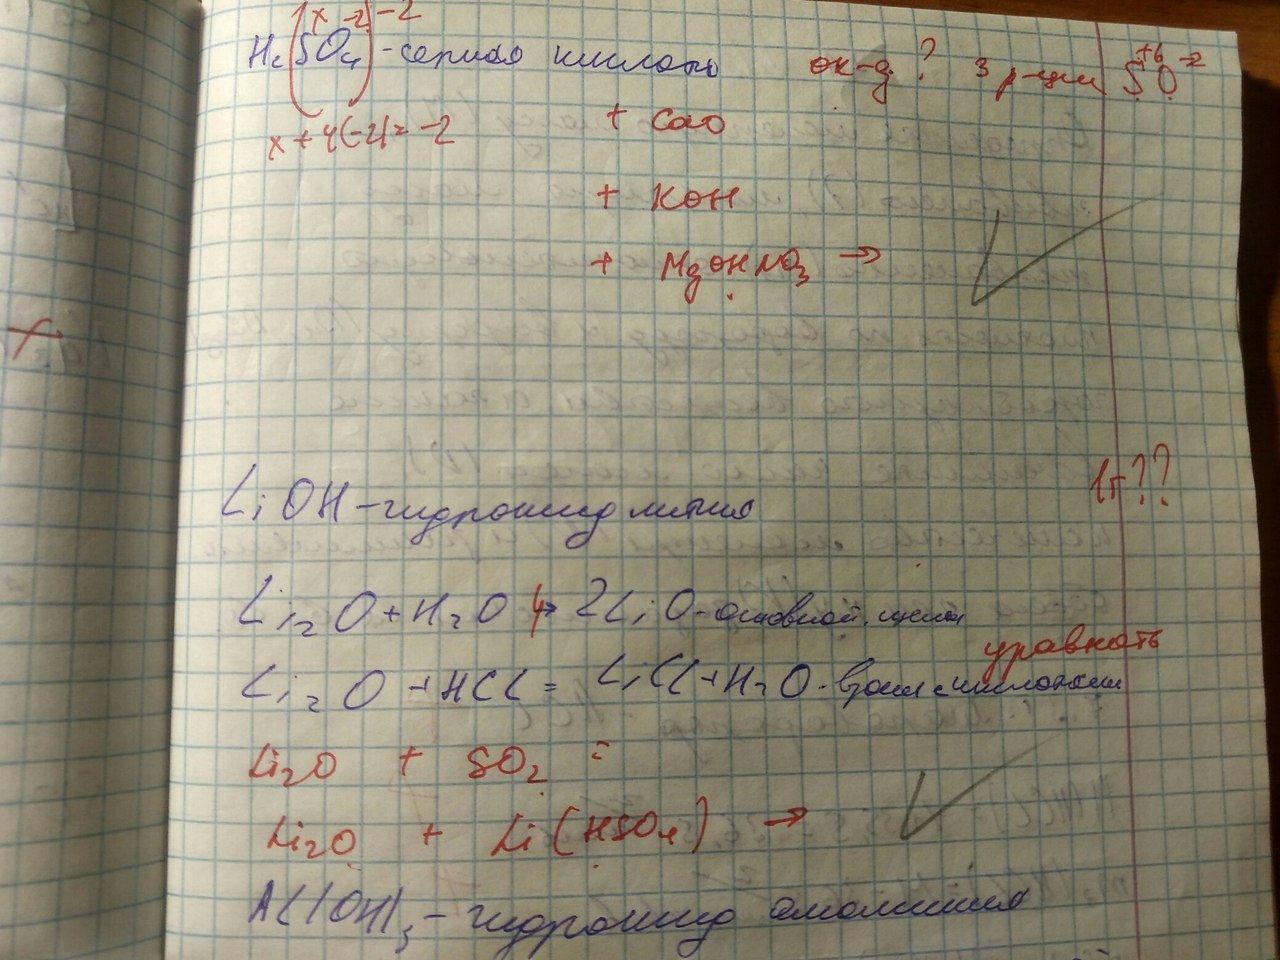 (x -2) -2
H₂(SO₄) - серная кислота ок-д ? 3 р-ции S⁺⁶O⁻²
x + 4(-2) = -2
+ CaO
+ KOH
+ MgOHNO₃ →
LiOH - гидроксид лития
1т??
Li₂O + H₂O → 2LiO - основной, щелоч
уравнять
Li₂O + HCl = LiCl + H₂O - взаим с кислотами
Li₂O + SO₂ =
Li₂O + Li(HSO₄) →
Al(OH)₃ - гидроксид алюминия